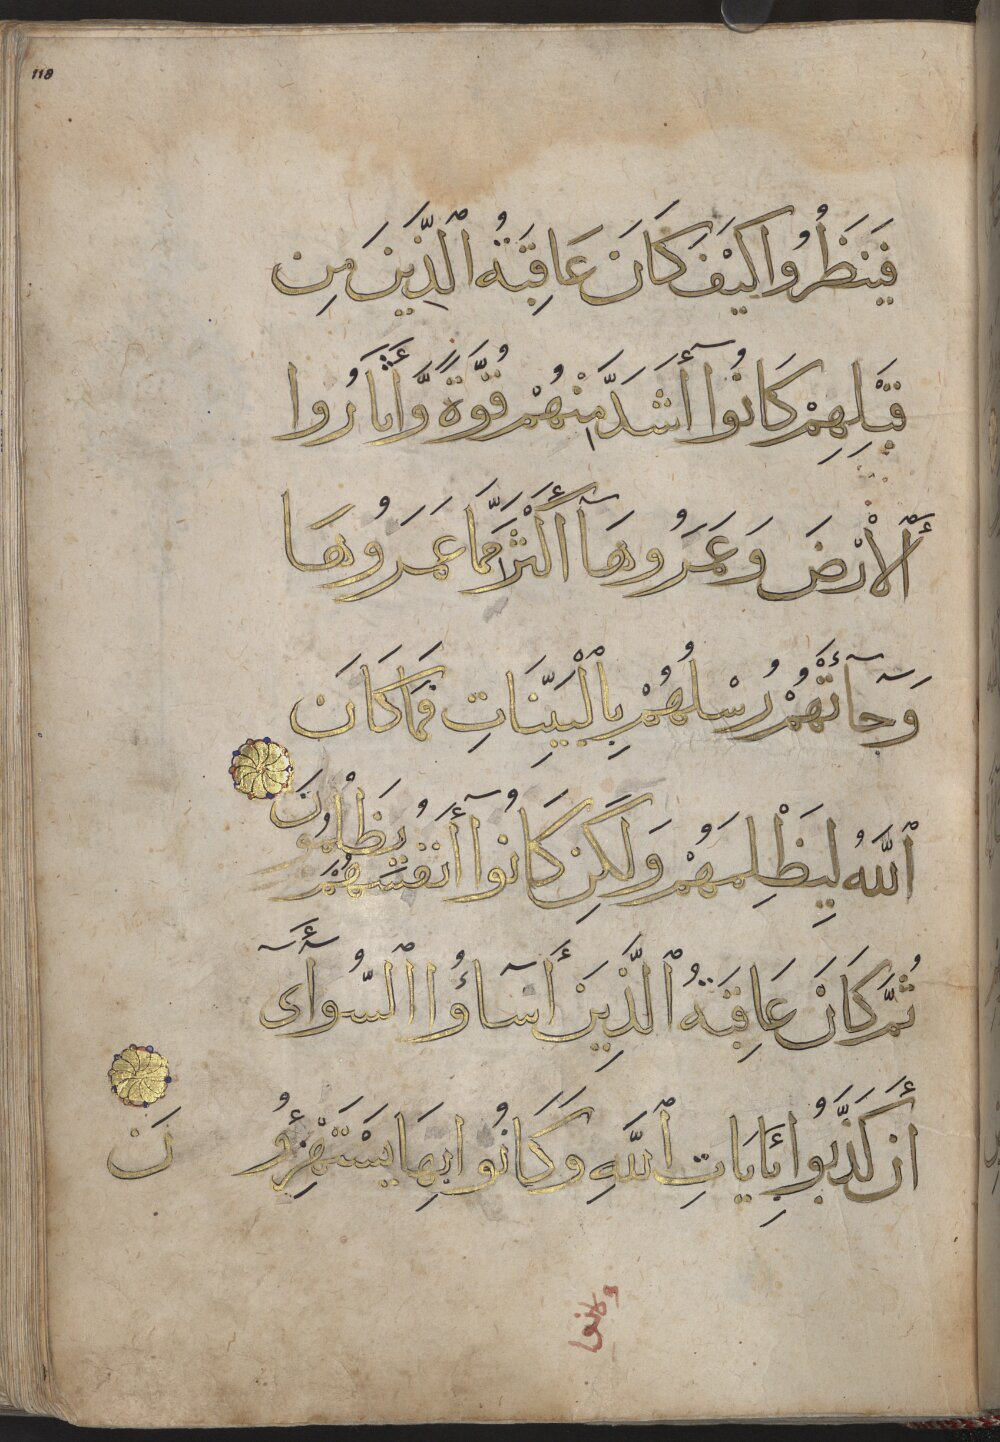 118
فَيَنظُرُوا كَيْفَ كَانَ عَاقِبَةُ ٱلَّذِينَ مِن
قَبْلِهِمْ كَانُوٓا أَشَدَّ مِنْهُمْ قُوَّةً وَّأَثَارُوا
ٱلْأَرْضَ وَعَمَرُوهَآ أَكْثَرَ مِمَّا عَمَرُوهَا
وَجَآءَتْهُمْ رُسُلُهُمْ بِٱلْبَيِّنَاتِ فَمَا كَانَ
ٱللَّهُ لِيَظْلِمَهُمْ وَلَكِن كَانُوٓا أَنفُسَهُمْ يَظْلِمُونَ
ثُمَّ كَانَ عَاقِبَةُ ٱلَّذِينَ أَسَآءُوا ٱلسُّوٓأَىٓ
أَن كَذَّبُوا بِـَٔايَاتِ ٱللَّهِ وَكَانُوا بِهَا يَسْتَهْزِءُونَ
وكانوا